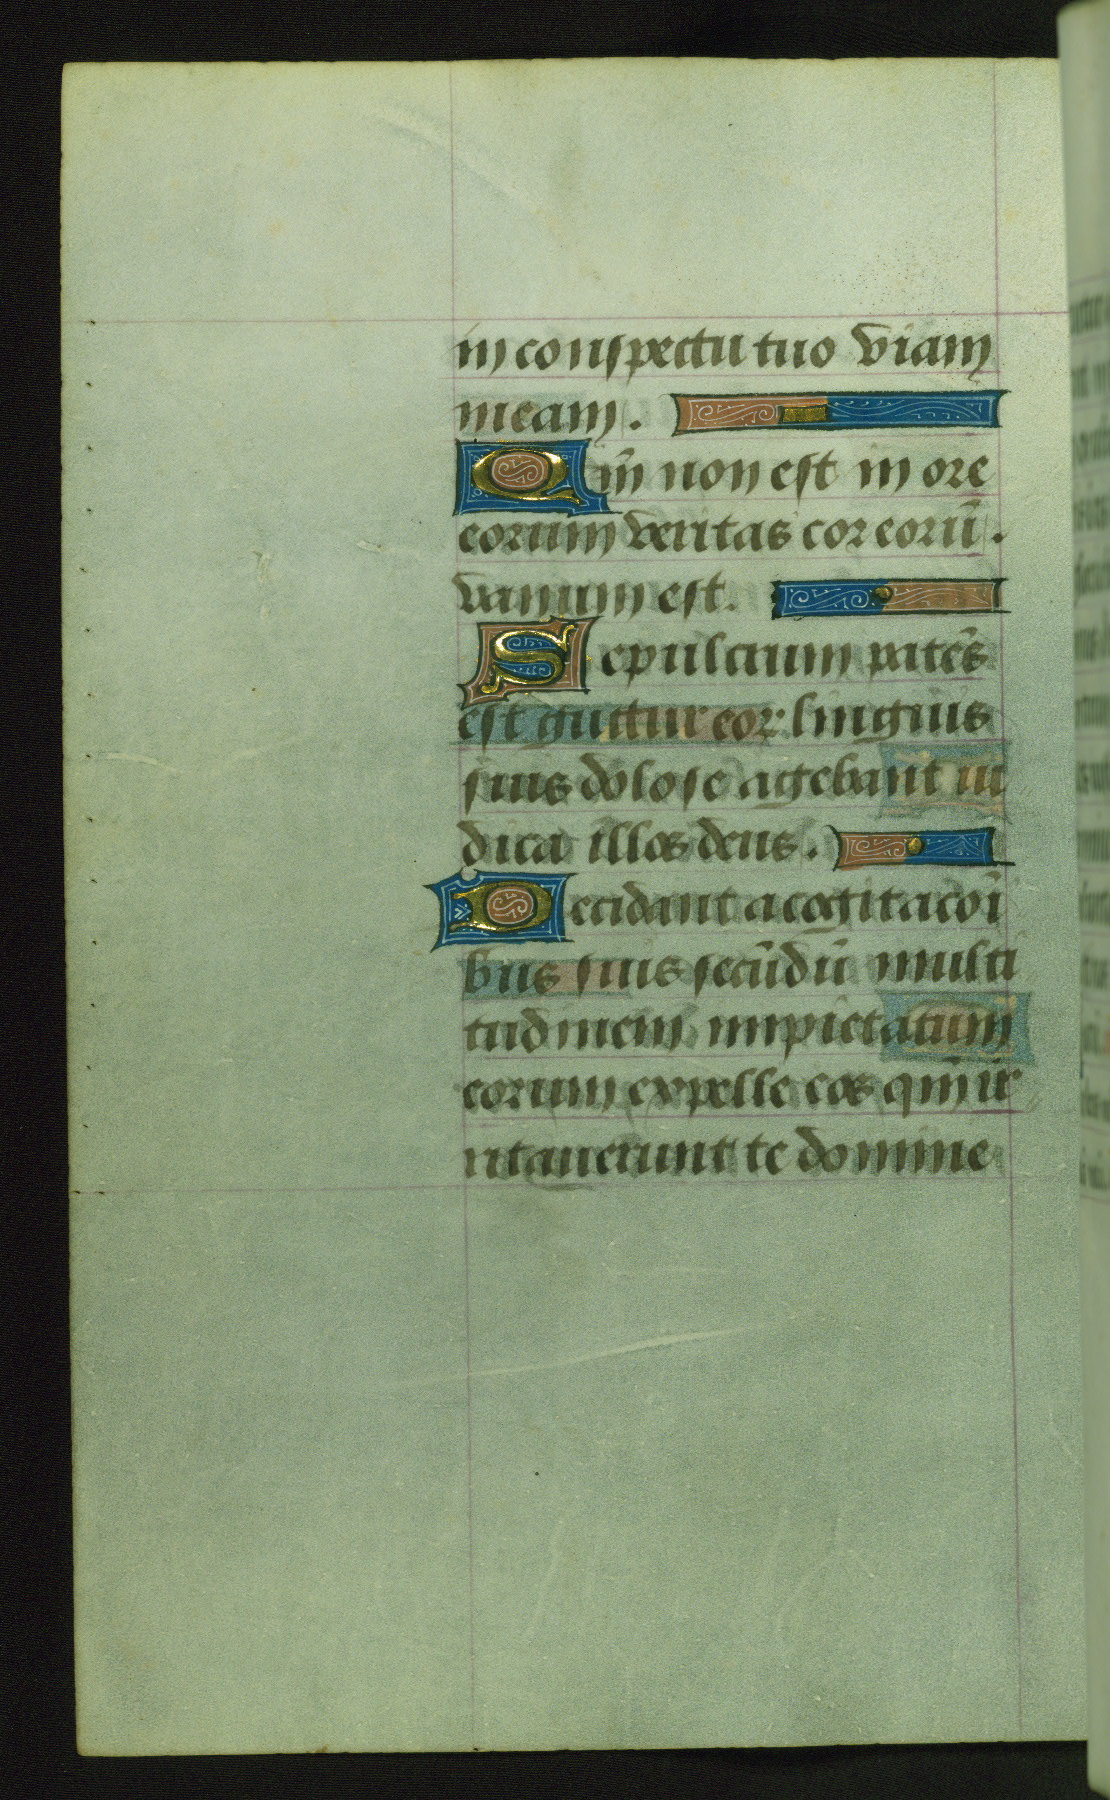 in conspectu tuo viam
meam.
Qm̄ non est in ore
eorum veritas cor eorū.
vanum est.
Sepulcrum patēs
est guttur eoꝝ linguis
suis dolose agebant iu
dica illos deus.
Decidant a cogitacōi
bus suis secūdū multi
tudinem impietatum
eorum expelle eos qm̄ ir
ritauerunt te domine